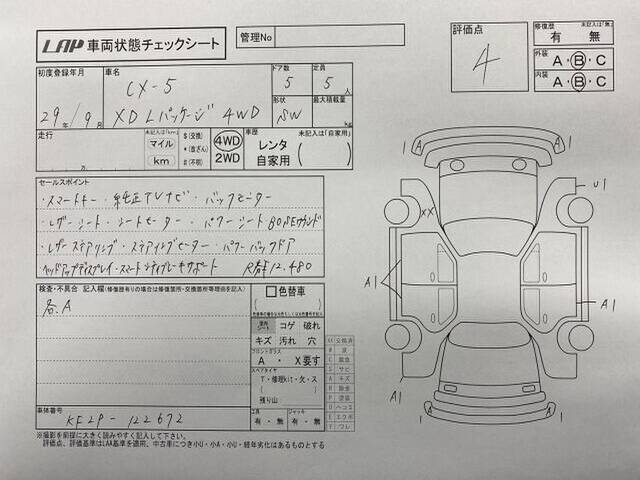 LAP 車両状態チェックシート
管理No
評価点
4
修復歴 未記入は「無」
有 ・ 無
外装
A・B・C
内装
A・B・C
初度登録年月
29年/9月
車名
CX-5
XD Lパッケージ 4WD
ドア数
5
定員
5人
形状
SW
最大積載量
kg
走行
未記入は「km」
マイル
km
万
$(交換)
*(改ざん)
#(不明)
4WD
2WD
車歴 未記入は「自家用」
レンタ
自家用
セールスポイント
・スマートキー・純正TVナビ・バックモニター
・レザーシート・シートヒーター・パワーシート BOSEサウンド
・レザーステアリング・ステアリングヒーター・パワーバックドア
ヘッドアップディスプレイ・スマートシティブレーキサポート R券¥12,480
検査・不具合 記入欄(修復歴有りの場合は修復箇所・交換箇所等理由記入)
各.A
色替車
車内シート
コゲ 破れ
キズ 汚れ 穴
フロントガラス
A ・ X要す
スペアタイヤ
T・修理kit・欠・ス
残り山
工具
有 ・ 無
ジャッキ
有 ・ 無
車体番号
KF2P-122672
※撮影を前提に大きく読みやすく記入して下さい。
評価点、評価基準はLAA基準を適用、中古車につき小U・小A・小U・経年劣化はあるものとする
XX 交換済
W 波
C 腐食
S サビ
A キズ
P 塗装
U ヘコミ
E エクボ
Y ワレ
1 A
A 1
XX
U1
A1
A1
A1
1 A
A 1